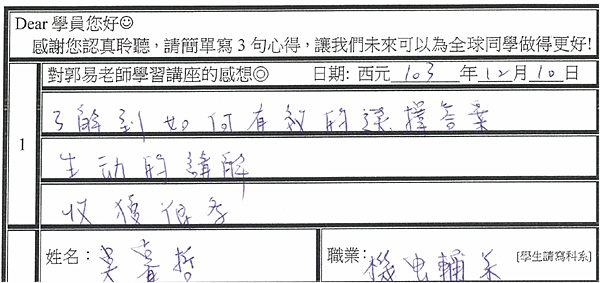 Dear 學員您好☺
感謝您認真聆聽，請簡單寫 3 句心得，讓我們未來可以為全球同學做得更好!
1
對郭易老師學習講座的感想◎ 日期: 西元 103 年 12 月 10 日
了解到如何有效的選擇答案
生动的講解
收獲很多
姓名： 吳 哲 職業: 機电輔系 [學生請寫科系]